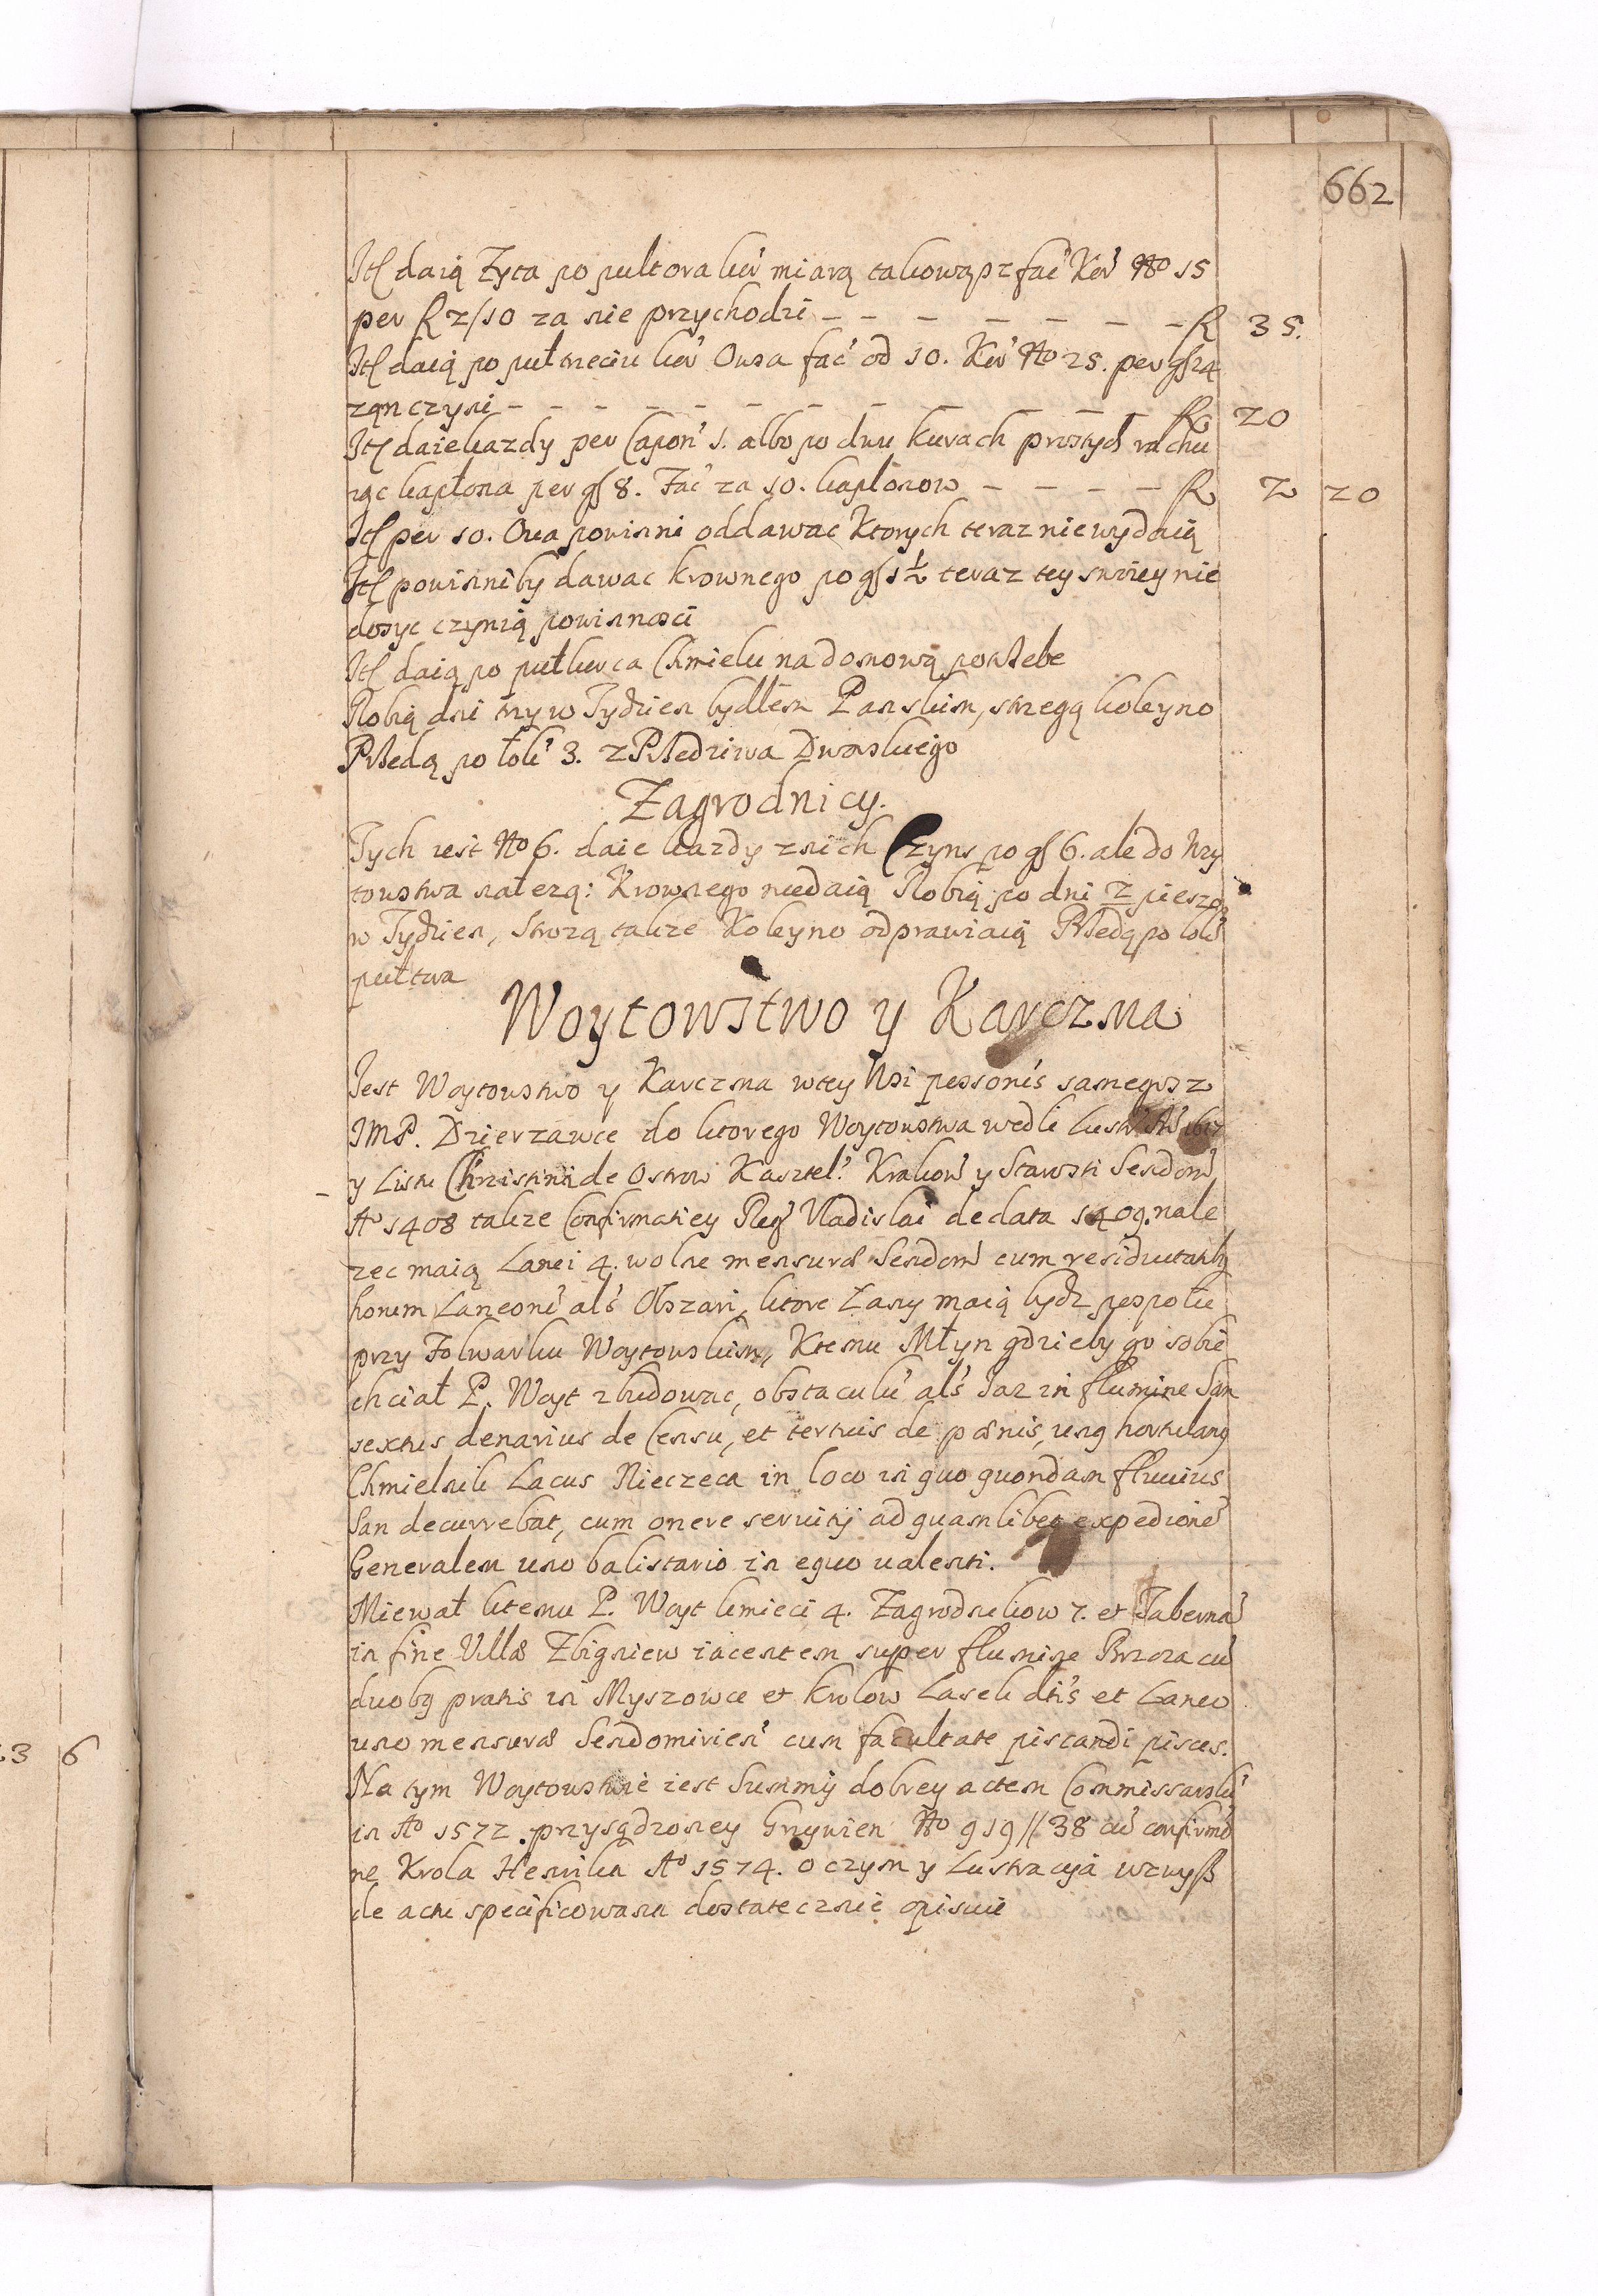 662
Itē daią Zyta po pultora kor̄ miarą takową pz fać Kor̄ No 15
per fl 2/10 za nie przychodzi – – – – – – – fl 35.
Itē daią po puł trzeciu kor̄ Owsa fać od 10. Kor̄ No 25. per gſ 24
zań czyni – – – – – – – – – – – – fl 20
Itē daie kazdy per Capon̄ 1. albo po dwu kurach prostych rachu
iąc kapłona per gſ 8. Fać za 10. kapłonow – – – – fl 2 20
Itē per 10. Oua powinni oddawac Ktorych teraz nie wydaią
Itē powinniby dawac krownego po gſ 1½ teraz tey swoiey nie
dosyc czynią powinnosci
Itē daią po puł korca Chmielu na domową potrzebe
Robią dni trzy w Tydzien bydłem Panskim, strzegą koleyno
Przedą po łok̄ 3. z Przedziwa Dworskiego
Zagrodnicy.
Tych iest No 6. daie kazdy z nich Czyns po gſ 6. ale do Woy
towstwa nalezą: Krownego niedaią Robią po dni 2 pieszo
w Tydzien, Strozą takze Koleyno odprawiaią Przedą po łok̄
puł twa
Woytowstwo y Karczma
Iest Woytowstwo y Karczma w tey Wsi personis samego sz
IMP. Dzierzawce do ktorego Woytowstwa wedle Lustr̄ Ao 1617
y Listu Christini de Ostrow Kasztel̄. Krakow̄ y Starosti Sendom̄
Ao 1408 takze Confirmatiey Reḡ Vladislai de data 1409. nale
zec maią Lanei 4. wolne mensuræ Sendom̄ cum residuitatibȝ
horum Laneor̄ al̄s Obszari, ktore Łany maią bydz pospołu
przy Folwarku Woytowskim, Ktemu Młyn gdzieby go sobie
chciał P. Woyt zbudowac, obstaculū al̄s Iaz in flumine San
sextus denarius de Censu, et tertius de pœnis, unȝ hortulanȝ
Chmielnik Lacus Rieczeca in loco in quo quondam fluuius
San decurrebat, cum onere seruitij ad quamlibet expedionē
Generalem uno balistario in equo ualenti.
Miewał ktemu P. Woyt kmieci 4. Zagrodnikow 7. et Tabernā
in fine Villæ Zbigniew iacentem super flumine Brzoza cū
duobȝ pratis in Myszowce et Krolow Lasek dtīs et Laneo
uno mensuræ Sendomirien̄ cum facultate piscandi pisces.
Na tym Woytowstwie iest Summy dobrey actem Commissarsk̄
in Ao 1572 przysądzoney Grzywien No 919//38 cū confirmō
ne Krola Henrika Ao 1574. o czym y Lustracyia wzwyſz
de actu specificowana dostatecznie opisuie
3 6